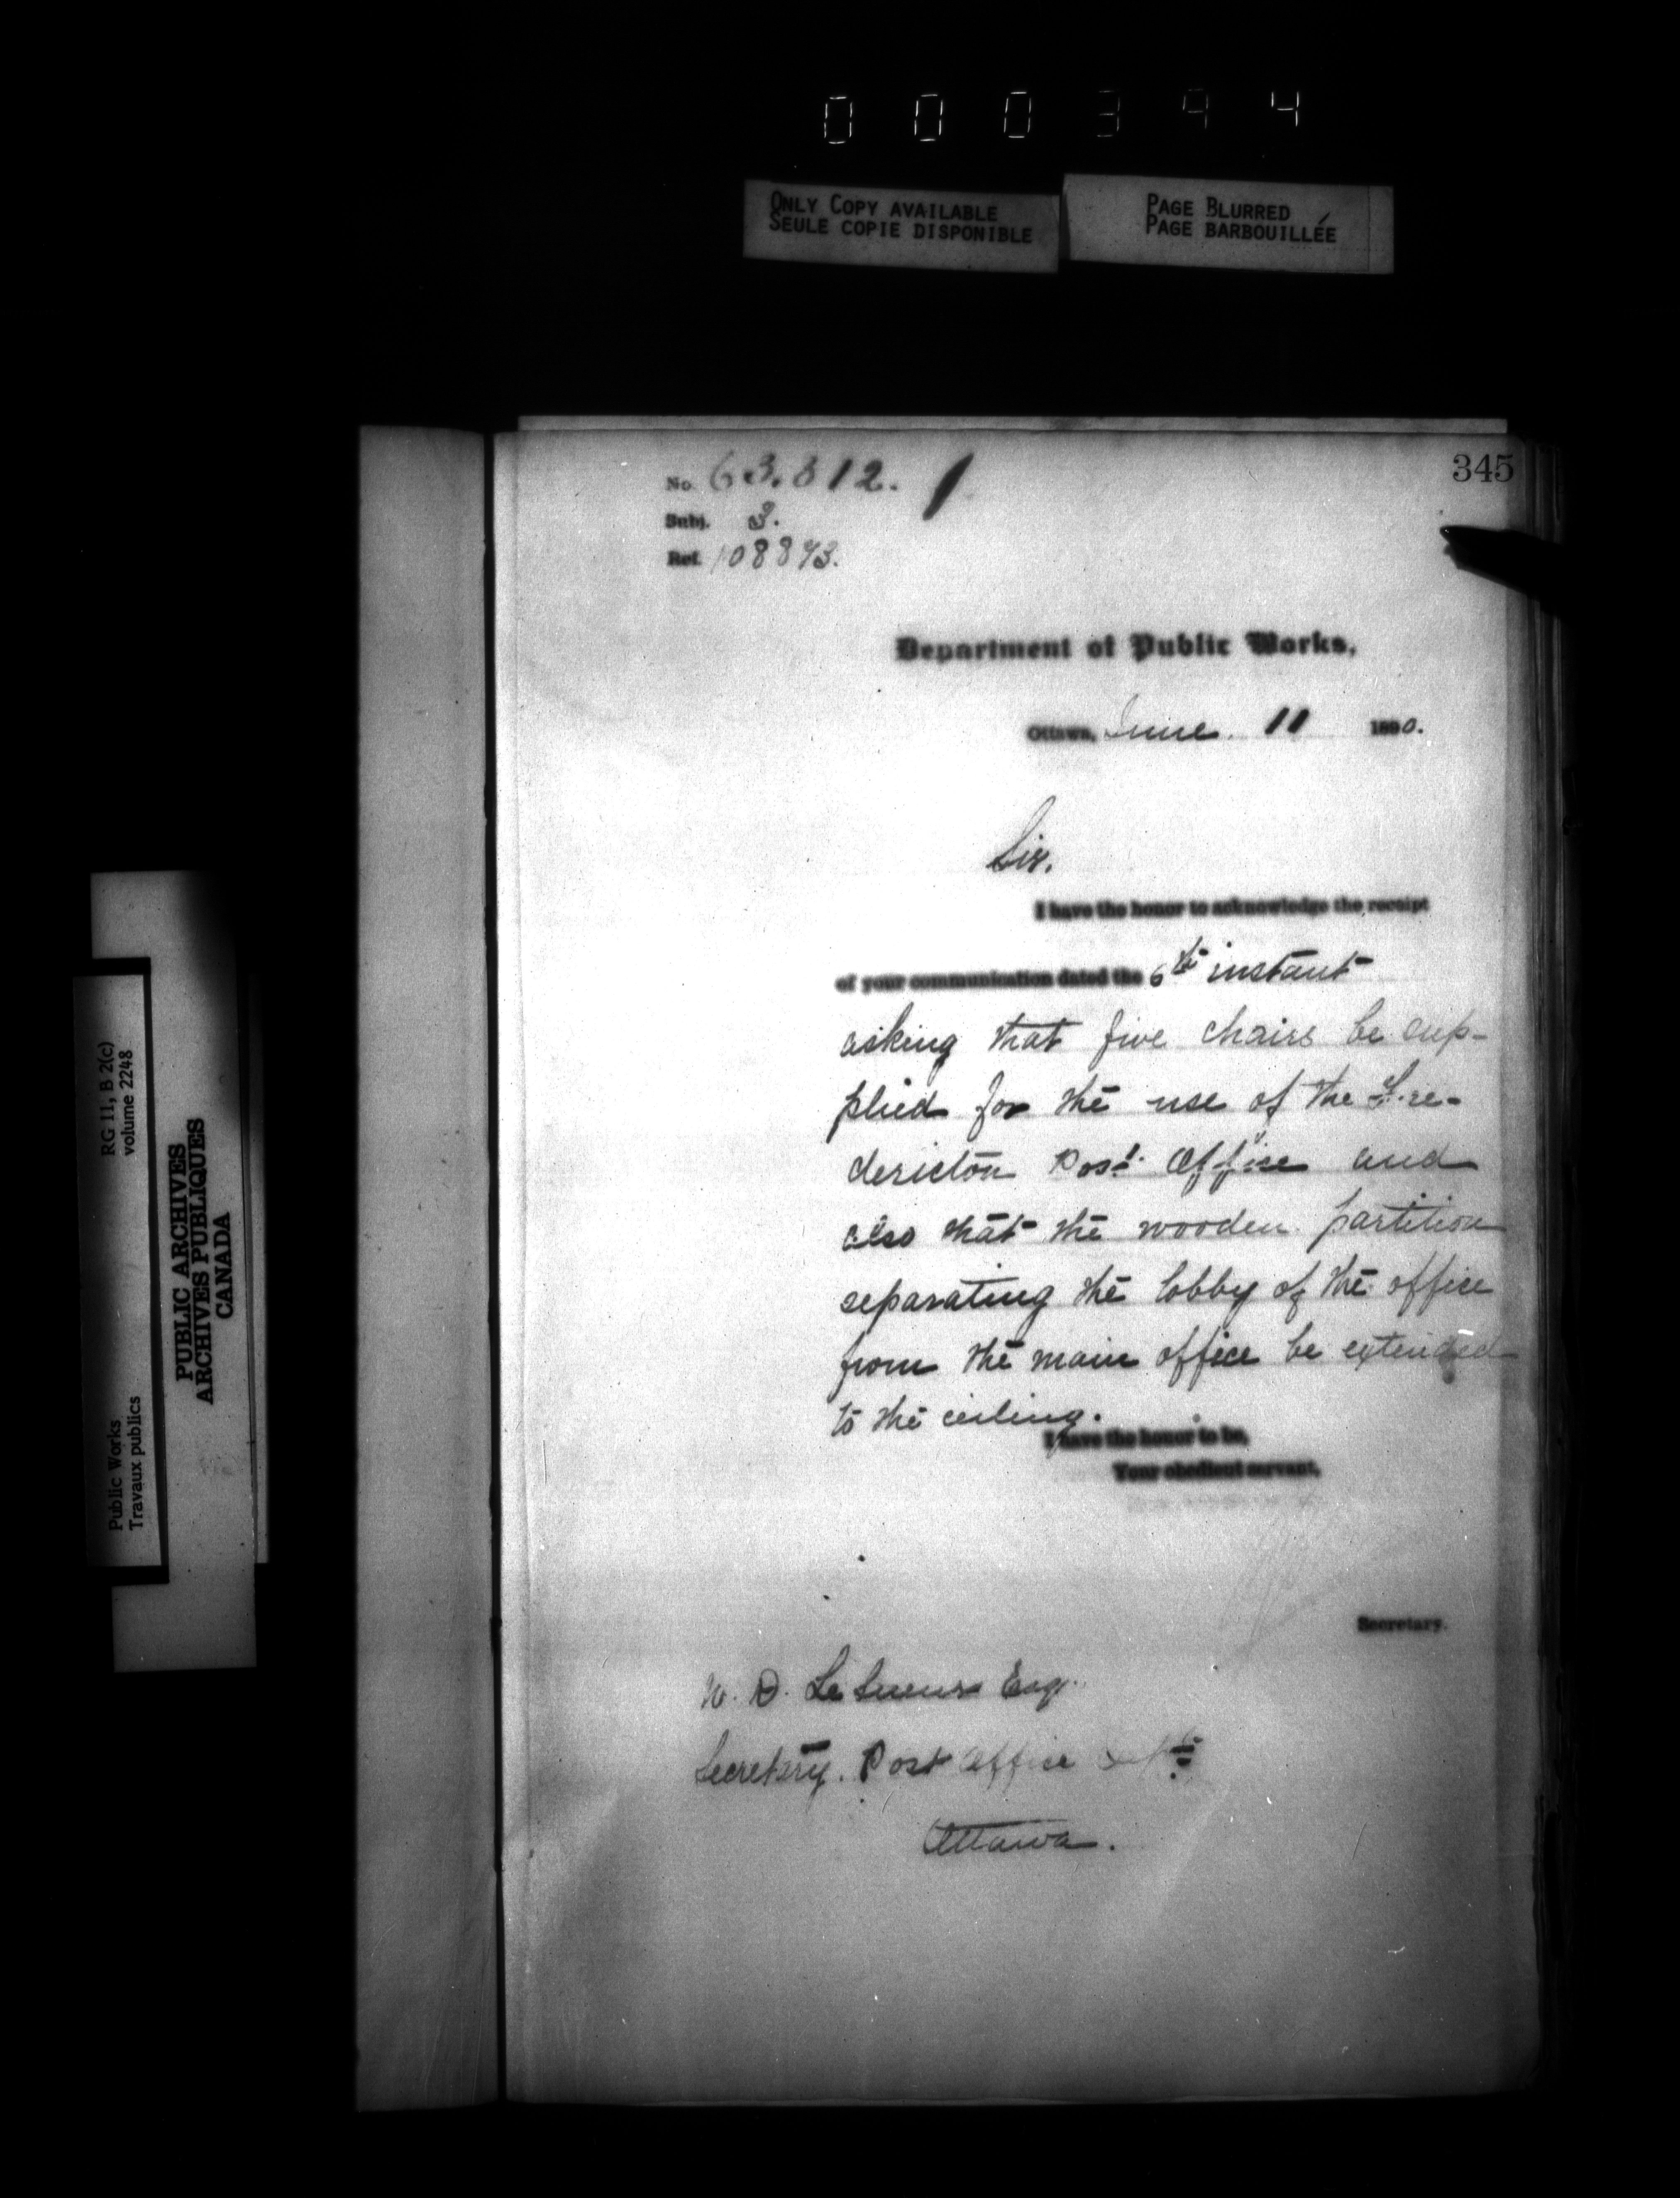 000394
ONLY COPY AVAILABLE
SEULE COPIE DISPONIBLE
PAGE BLURRED
PAGE BARBOUILLÉE
345
No. 63.812. 1
Subj. 3.
Ref. 108893.
Department of Public Works,
Ottawa, June 11 1890.
Sir,
I have the honor to acknowledge the receipt
of your communication dated the 6th instant
asking that five chairs be sup-
plied for the use of the Fre-
dericton Post Office and
also that the wooden partition
separating the lobby of the office
from the main office be extended
to the ceiling.
I have the honor to be,
Your obedient servant,
Secretary.
W. D. Le Sueur Esq.
Secretary. Post Office Dept
Ottawa.
RG 11, B 2(c)
volume 2248
Public Works
Travaux publics
PUBLIC ARCHIVES
ARCHIVES PUBLIQUES
CANADA